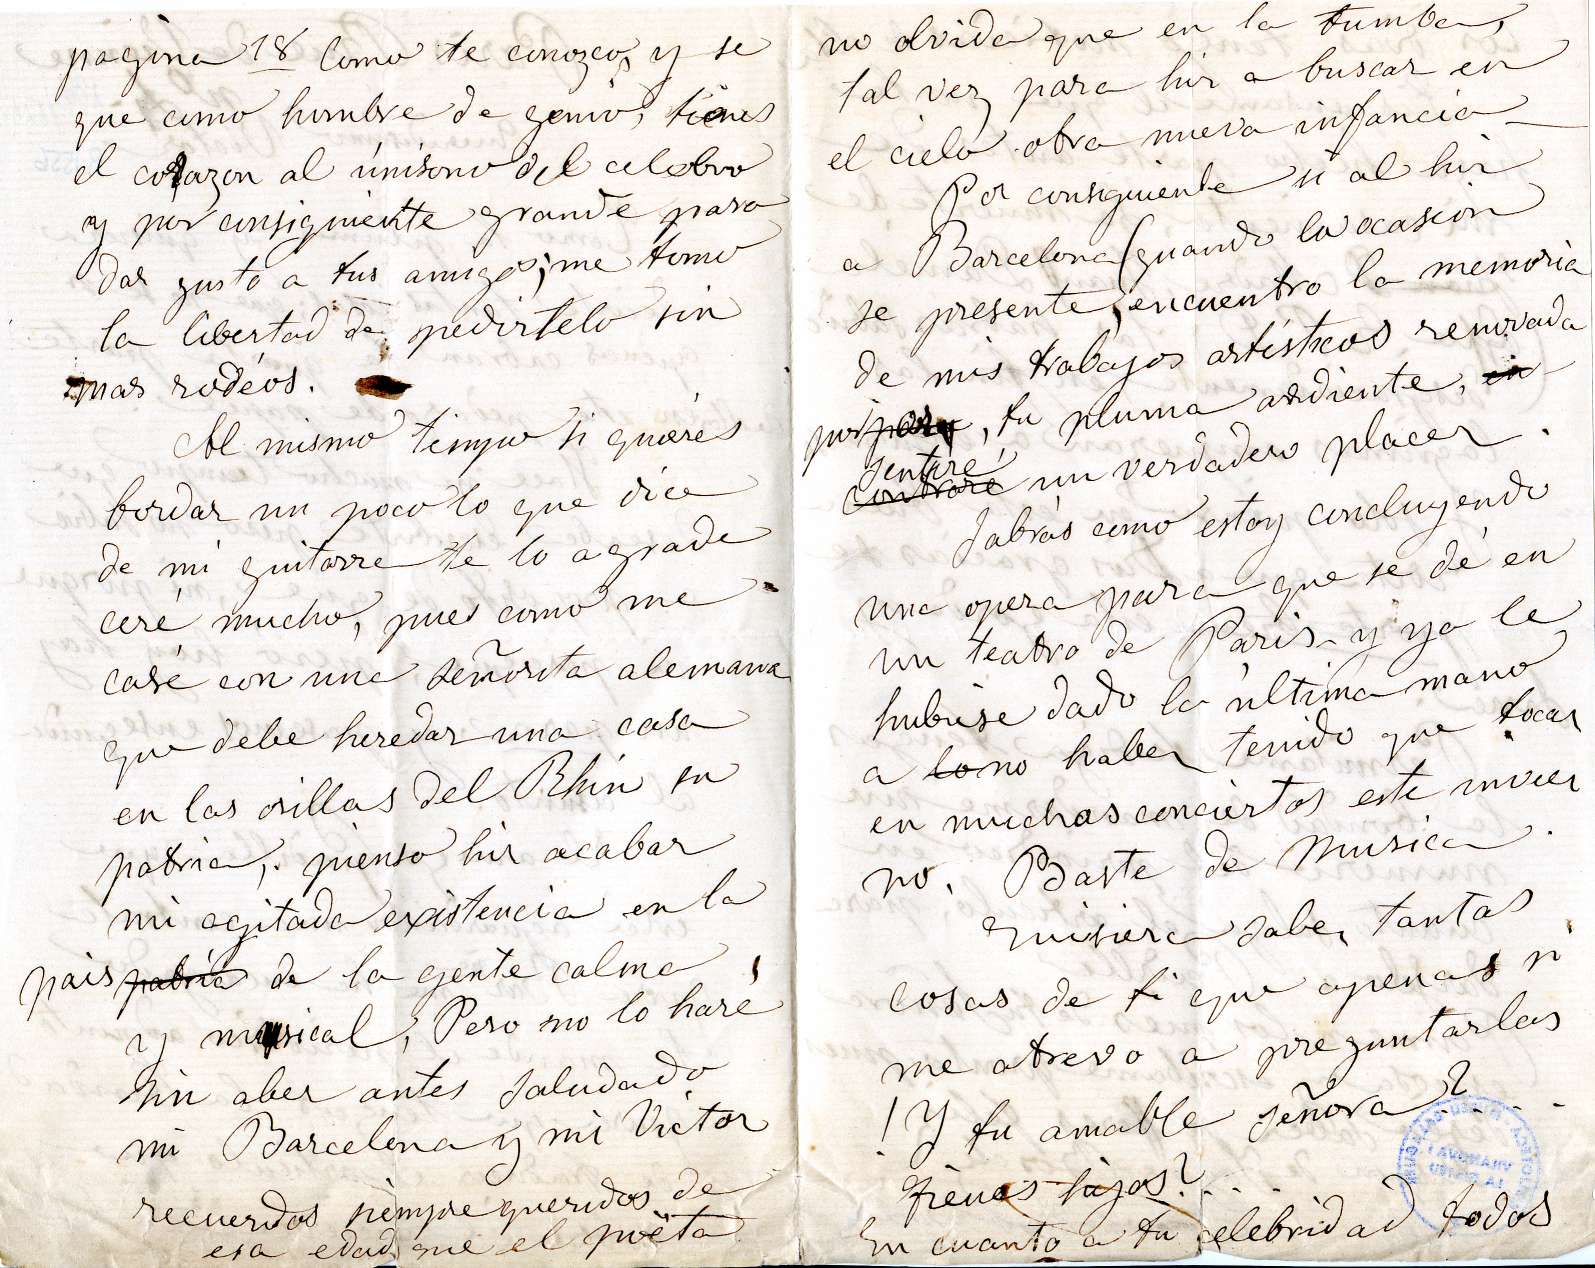 pagina 18 Como te conozco, y se
que como hombre de genio, tienes
el corazon al únisono del celebro
y por consiguiente grande para
dar gusto a tus amigos; me tomo
la libertad de pedirtelo sin
mas rodéos.
Al mismo tiempo si quieres
bordar un poco lo que dice
de mi guitarre te lo agrade
ceré mucho, pues como me
casé con una señorita alemana
que debe heredar una casa
en las orillas del Rhin su
patria, pienso hir acabar
mi agitada existencia en la
pais patria de la gente calma
y musical, Pero no lo haré
sin aber antes saludado
mi Barcelona y mi Victor
recuerdos siempre queridos de
esa edad que el poëta
no olvida que en la tumba,
tal vez para hir a buscar en
el cielo otra nueva infancia_
Por consiguiente si al hir
a Barcelona (quando la ocasion
se presente, encuentro la memoria
de mis trabajos artísticos renovada
por para, tu pluma ardiente, en
sentiré
contraré un verdadero placer.
Sabrás como estoy concluyendo
una opera para que se dé en
un teatro de Paris y ya le
hubiese dado la última mano
a lo no haber tenido que tocar
en muchos conciertos este invier
no. Baste de musica.
Quisiera saber tantas
cosas de ti que apenas si
me atrevo a preguntarlas
! Y tu amable señora? . . . .
Tienes hijos? . . .
En cuanto a tu celebridad todos